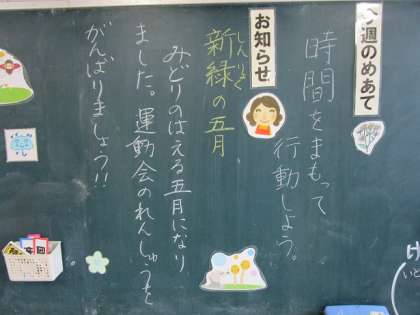 今週のめあて
時間をまもって
行動しよう。
お知らせ
しんりょく
新緑の五月
みどりのはえる五月になり
ました。運動会のれんしゅうを
がんばりましょう!!